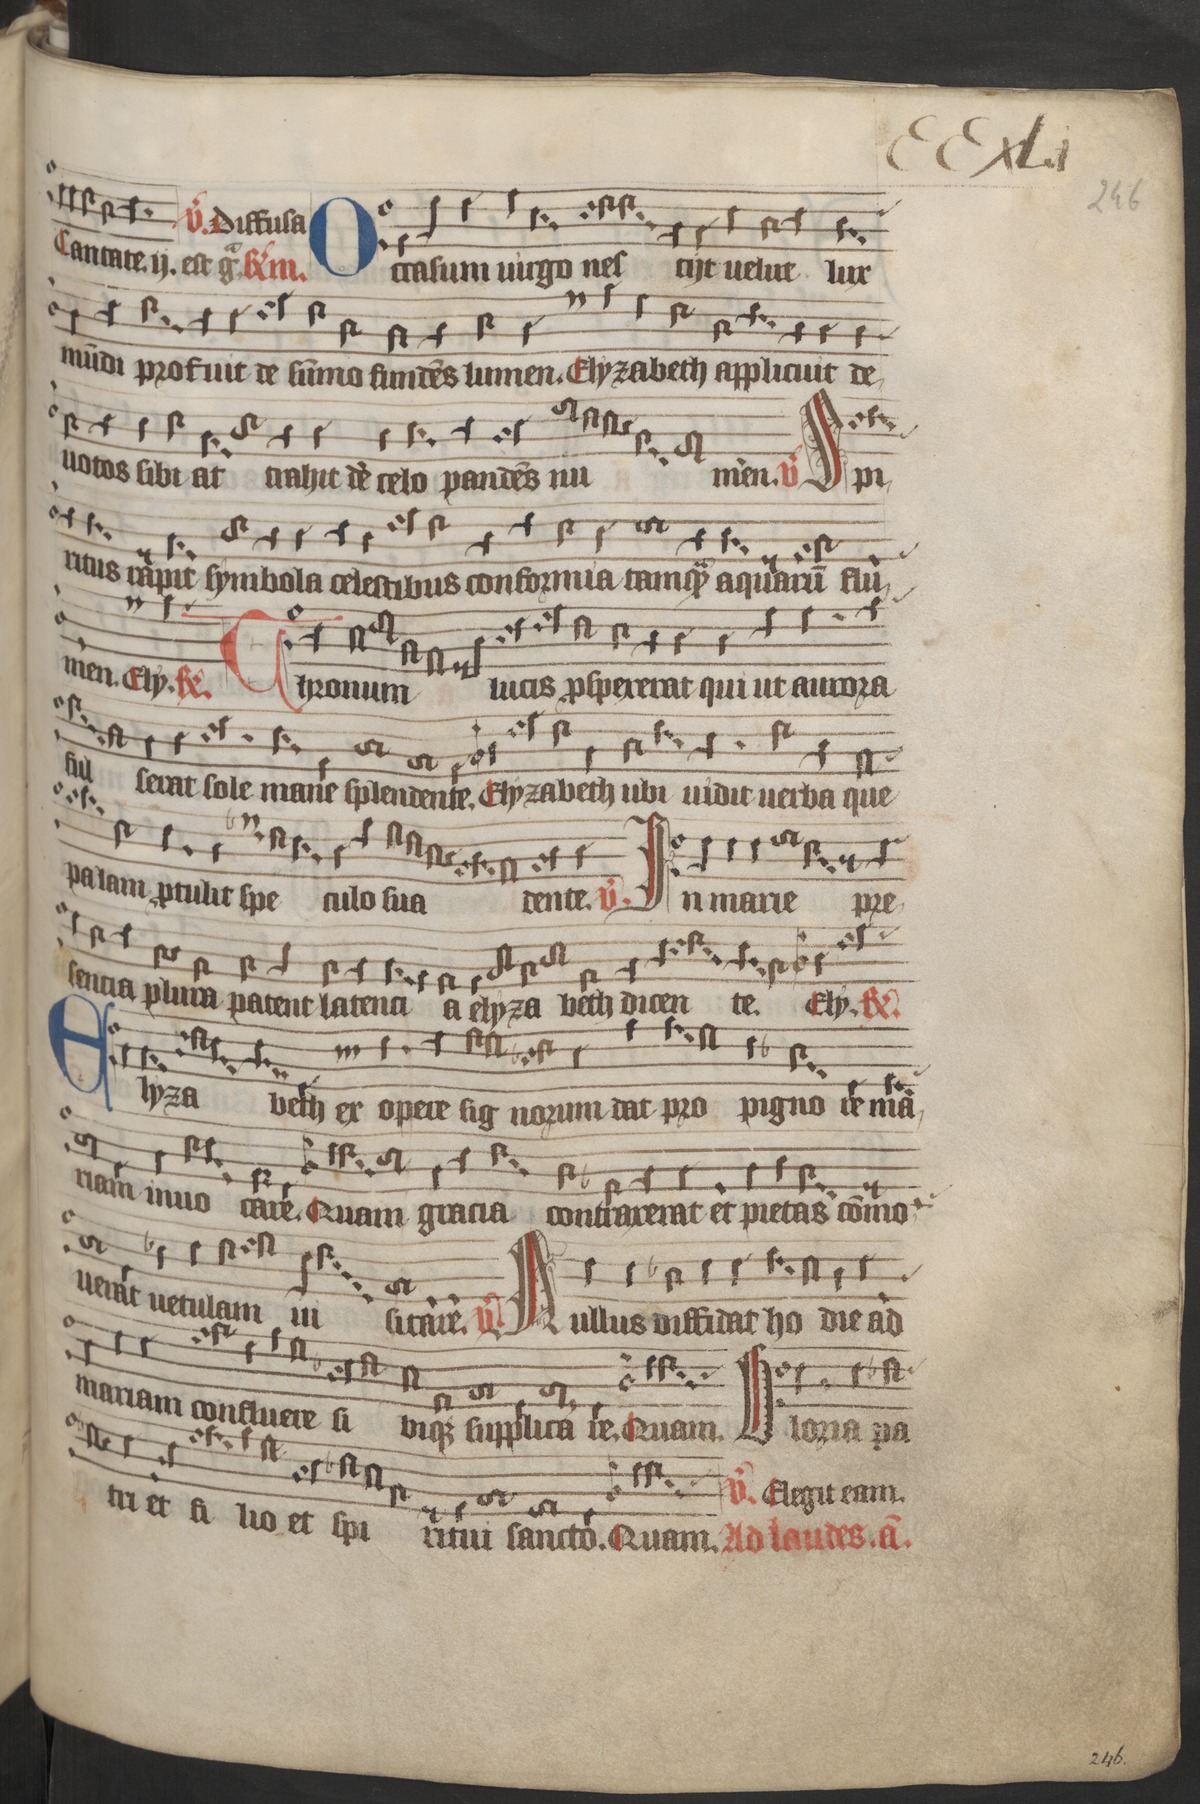 CCXLi
246
V̄. Diffusa
Cantate. ij. est gͣ. R̄m. Occasum uirgo nes cijt uelut lux
mūdi profuit de sūmo fundēs lumen. Elyzabeth applicuit de
uotos sibi at trahit de celo pandēs nu men. V̄ Spi
ritus cāpit symbola celestibus conformia tamqͣ aquarū flu
men. Ely. R̄. Thronum lucis ꝓspexerat qui ut aurora
ful serat sole mane splendente. Elyzabeth ubi uidit uerba que
palam ꝓtulit spe culo sua dente. V̄. In marie pre
sencia plura patent latenci a elyza beth dicen te. Ely. R̄.
Elyza beth ex opere sig norum dat pro pigno re ma
riam inuo care. Quam gracia contraxerat et pietas cōmo
uerat uetulam ui sitare. V̄ Nullus diffidat ho die ad
mariam confluere si biqꝫ supplica re. Quam. Gloria pa
tri et fi lio et spi ritui sancto. Quam. V̄. Elegit eam.
Ad laudes. ā.
246.